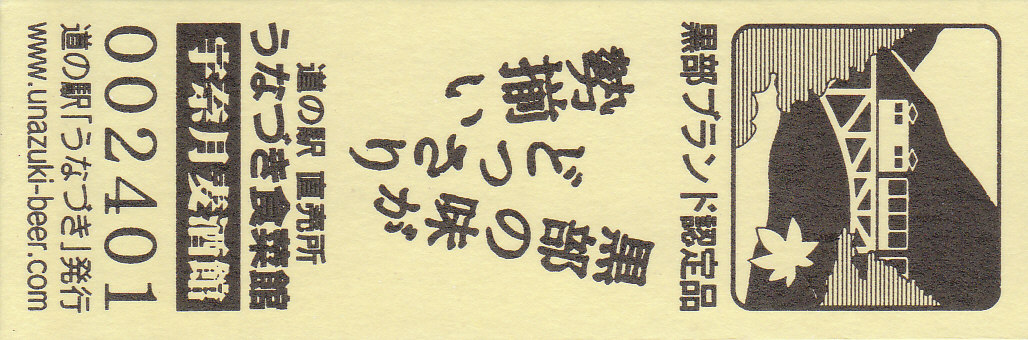 黒部ブランド認定品
黒部の味が
どっさり
勢揃い
道の駅 直売所
うなづき食菜館
宇奈月麦酒館
002401
道の駅「うなづき」発行
www.unazuki-beer.com